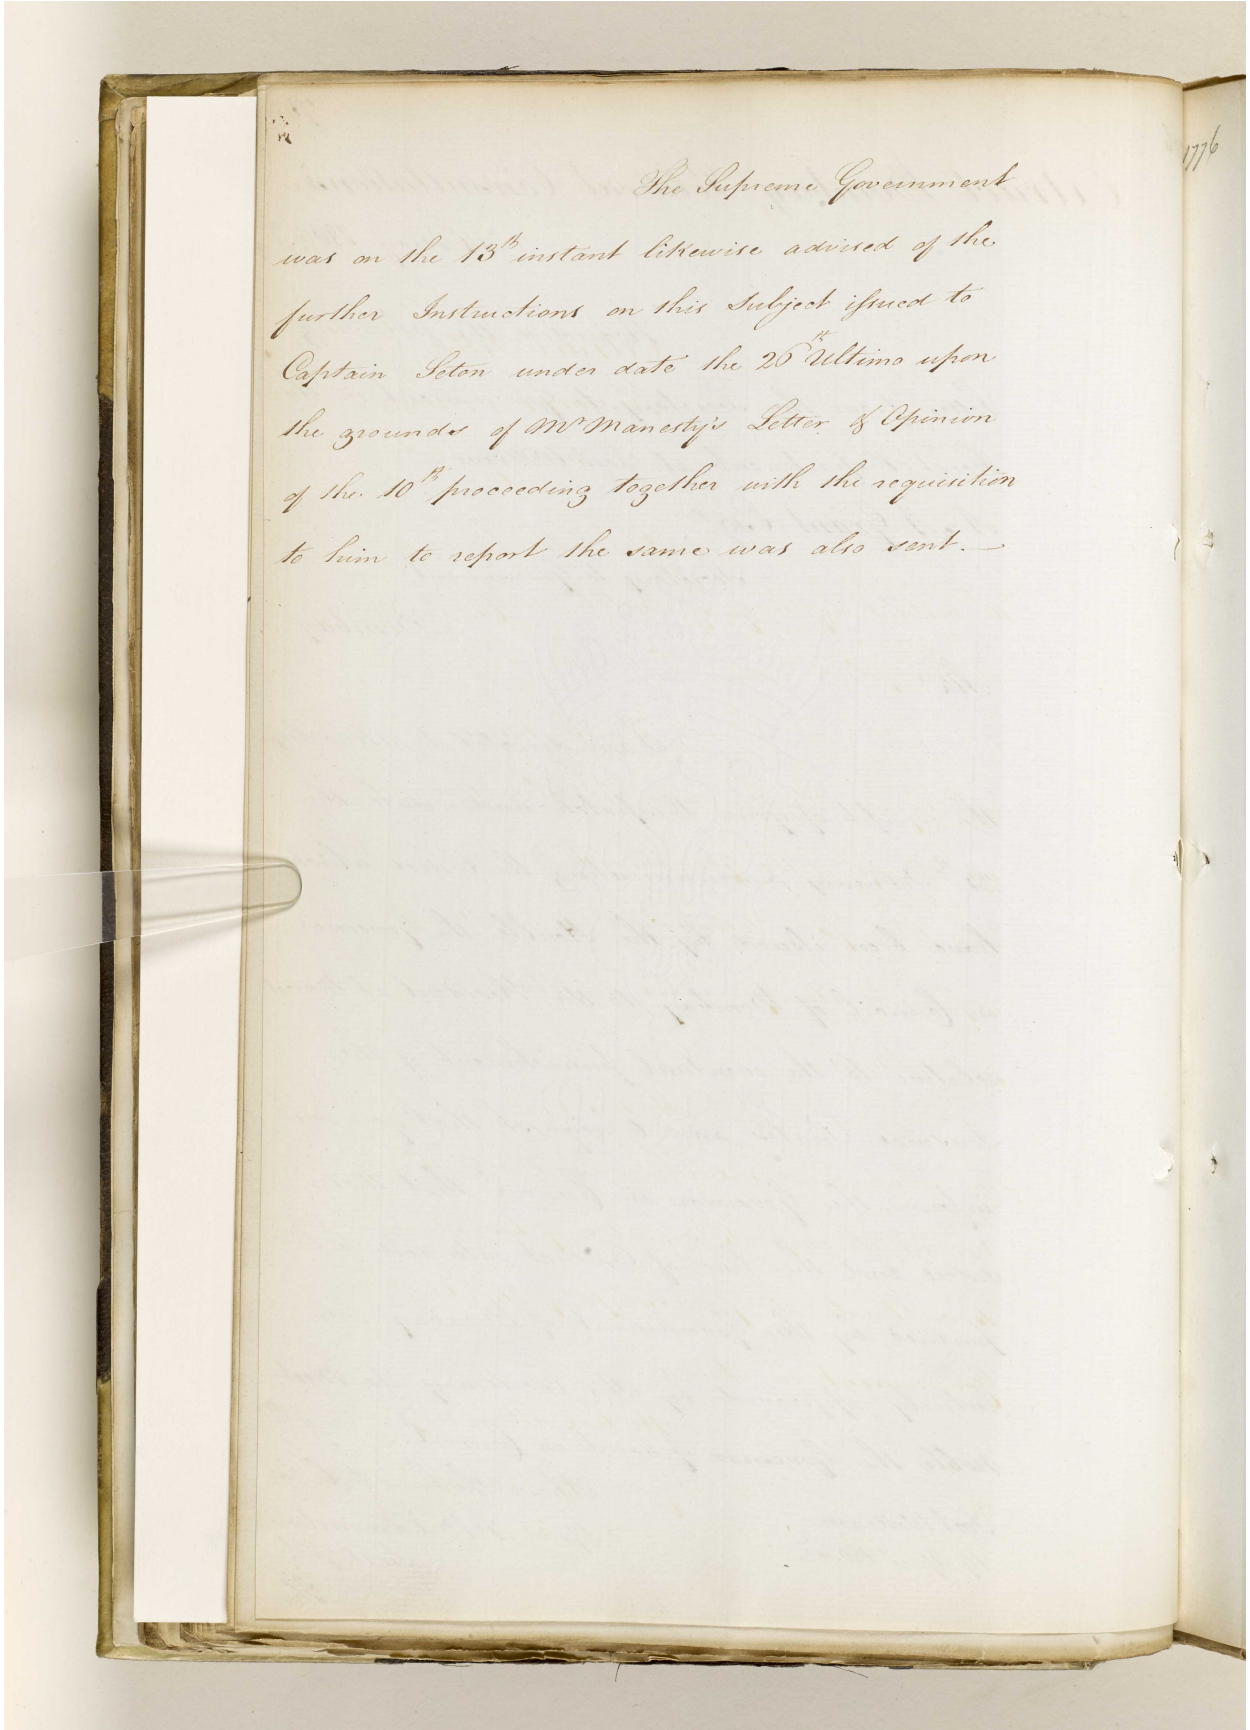 The Supreme Government
was on the 13th instant likewise advised of the
further Instructions on this Subject issued to
Captain Seton under date the 26th Ultimo upon
the grounds of Mr Manesty's Letter & Opinion
of the 10th proceeding together with the requisition
to him to report the same was also sent. —
1776